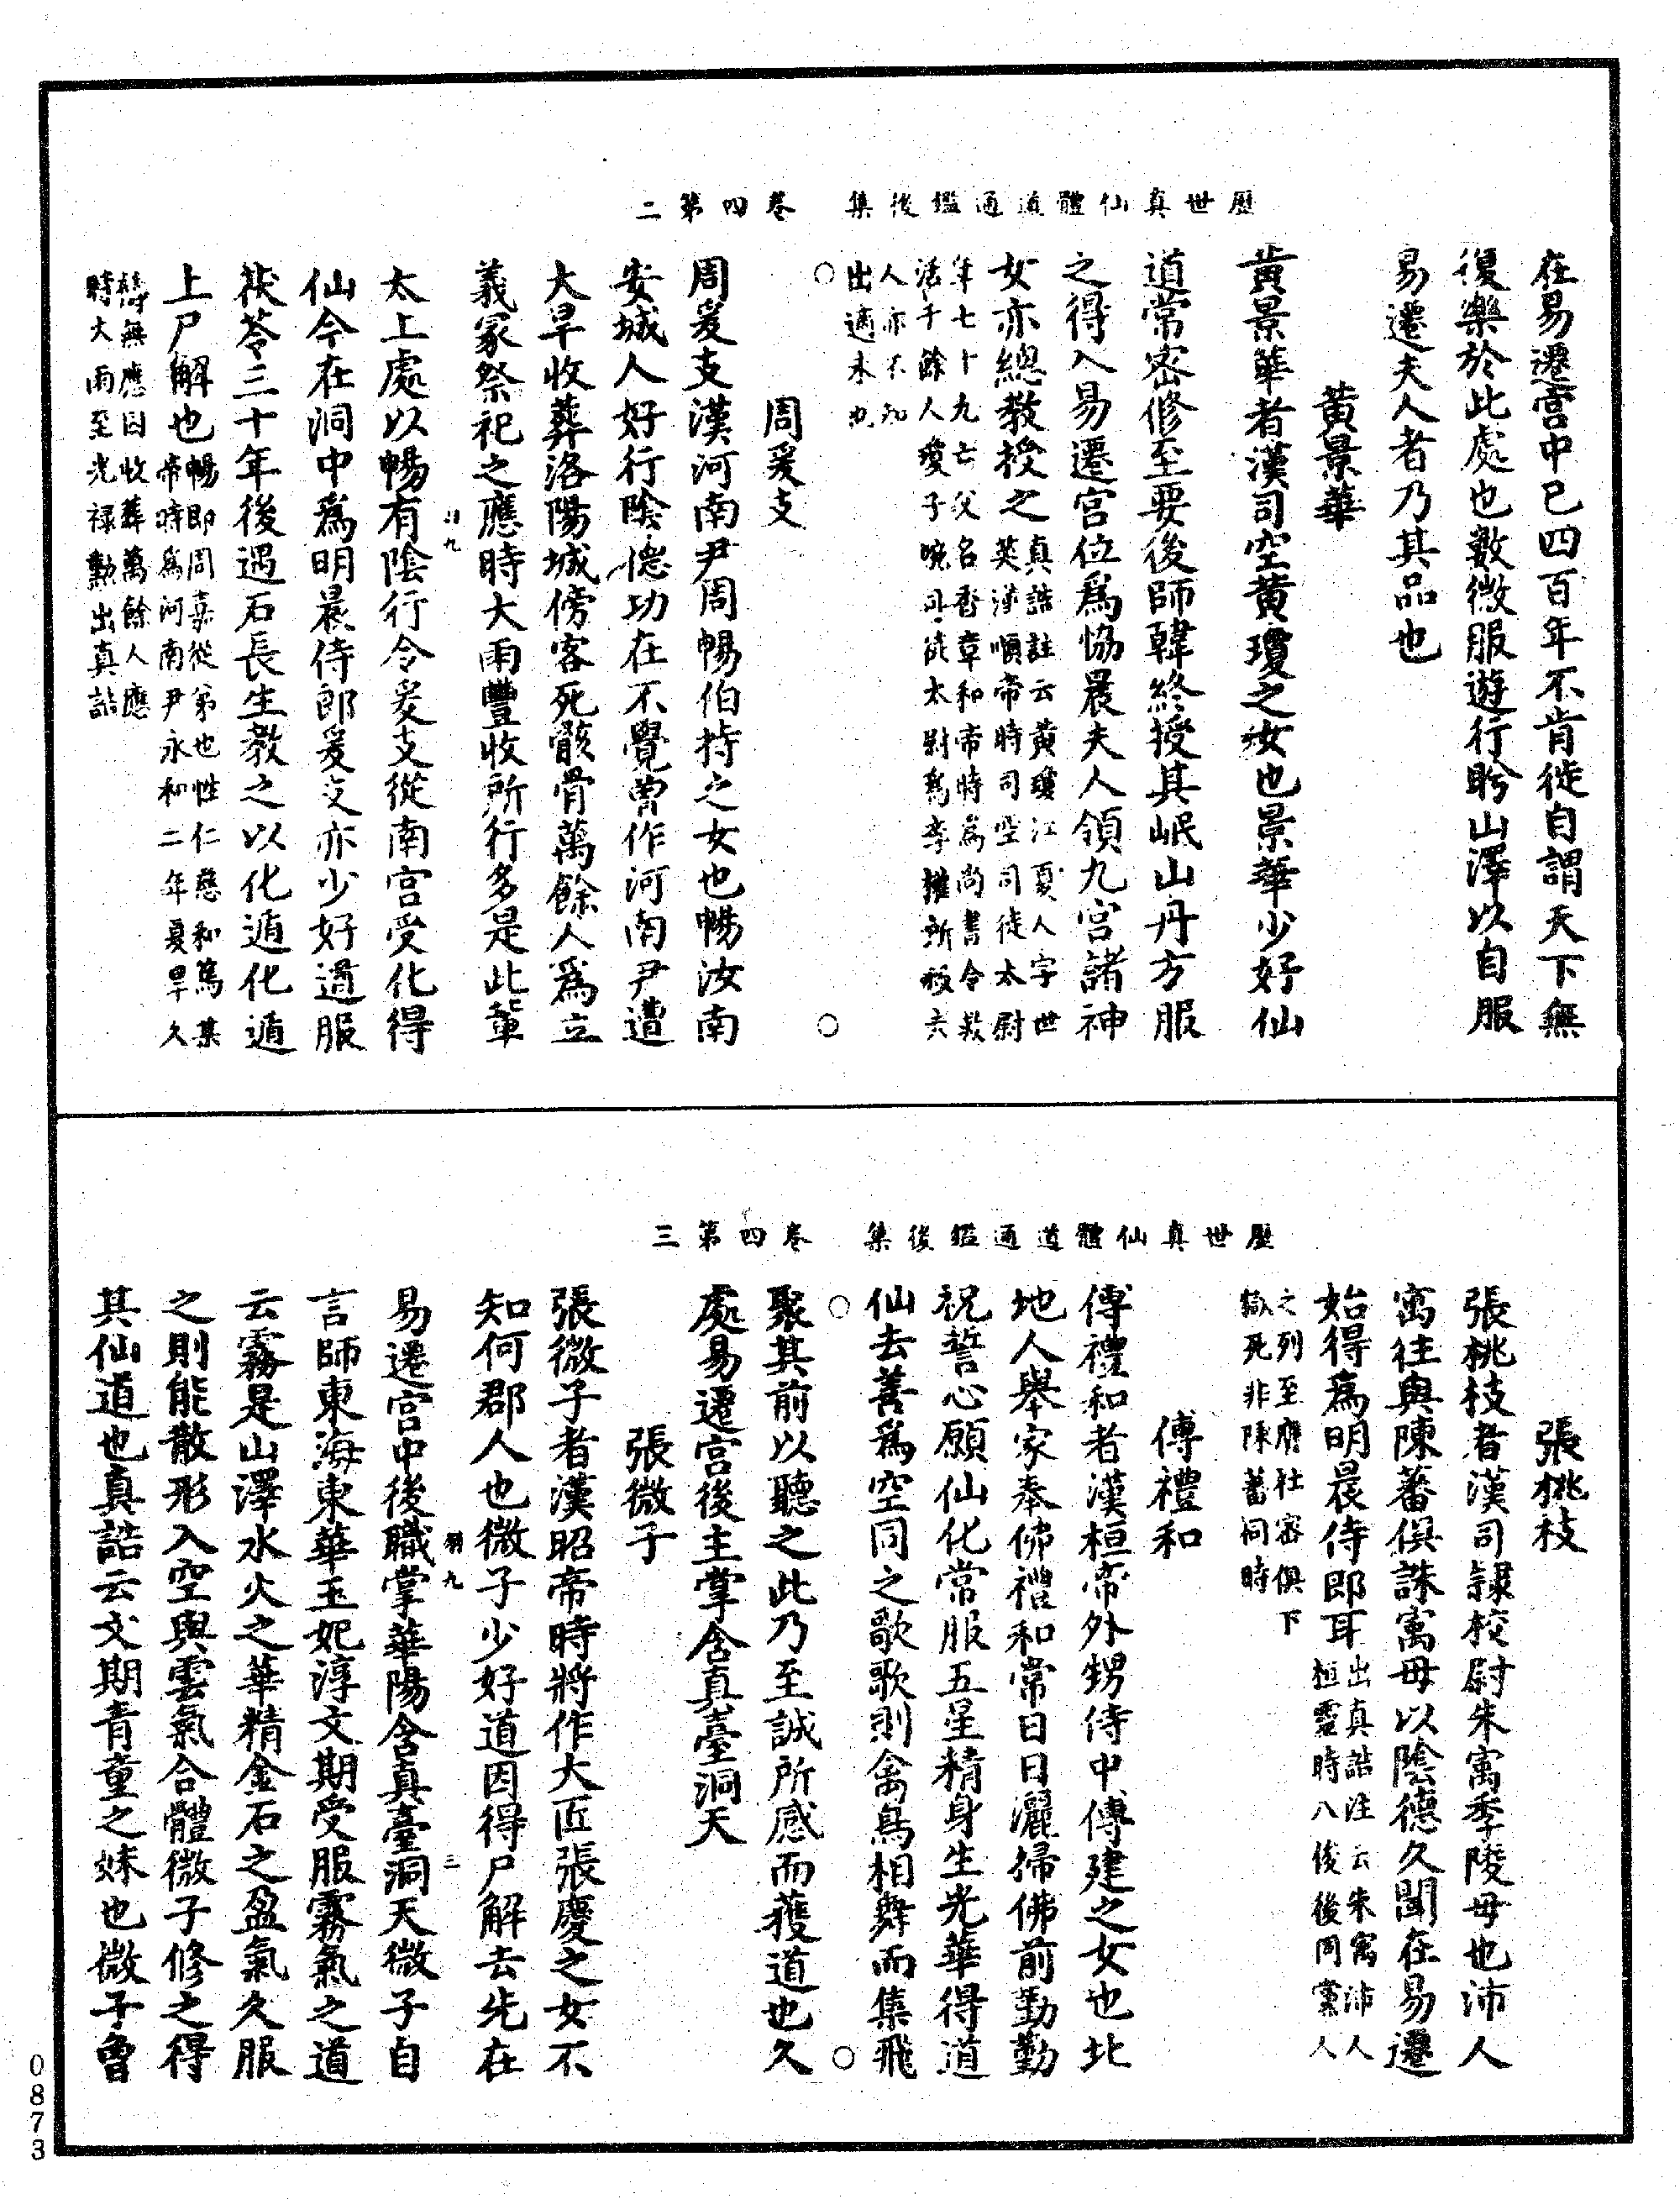 歷世真仙體道通鑑後集　卷四第二
在易遷宮中已四百年不肯徙自謂天下無
復樂於此處也數微服遊行盻山澤以自服
易遷夫人者乃其品也
黃景華
黃景華者漢司空黃瓊之女也景華少好仙
道常密修至要後師韓終授其岷山丹方服
之得入易遷宮位為協晨夫人領九宮諸神
女亦總教授之真誥註云黃瓊江夏人字世
英漢順帝時司空司徒太尉
年七十九亡父名香章和帝時為尚書令救
活千餘人瓊子琬司徒太尉為李㩁所殺夫
人亦不知
出適未也
周爰支
周爰支漢河南尹周暢伯持之女也暢汝南
安城人好行陰德功在不覺曾作河南尹遭
大旱收葬洛陽城傍客死骸骨萬餘人為立
義冢祭祀之應時大雨豐收所行多是此輩
太上處以暢有陰行令爰支從南宮受化得
仙今在洞中為明晨侍郎爰支亦少好道服
茯苓三十年後遇石長生教之以化遁化遁
上尸解也暢即周嘉從弟也性仁慈和篤某
帝時為河南尹永和二年夏旱久
禱無應因收葬萬餘人應
時大雨至光祿勳出真誥
歷世真仙體道通鑑後集　卷四第三
張桃枝
張桃枝者漢司隸校尉朱寓季陵母也沛人
寓往與陳蕃俱誅寓母以陰德久聞在易遷
始得為明晨侍郎耳出真誥注云朱寓沛人
桓靈時八俊後同黨人
之列至膺杜密俱下
獄死非陳蕃同時
傅禮和
傅禮和者漢桓帝外甥侍中傅建之女也北
地人舉家奉佛禮和常日日灑掃佛前勤勤
祝誓心願仙化常服五星精身生光華得道
仙去善為空同之歌歌則禽鳥相舞而集飛
聚其前以聽之此乃至誠所感而獲道也久
處易遷宮後主掌含真臺洞天
張微子
張微子者漢昭帝時將作大匠張慶之女不
知何郡人也微子少好道因得尸解去先在
易遷宮中後職掌華陽含真臺洞天微子自
言師東海東華玉妃淳文期受服霧氣之道
云霧是山澤水火之華精金石之盈氣久服
之則能散形入空與雲氣合體微子修之得
其仙道也真誥云文期青童之妹也微子曾
0873